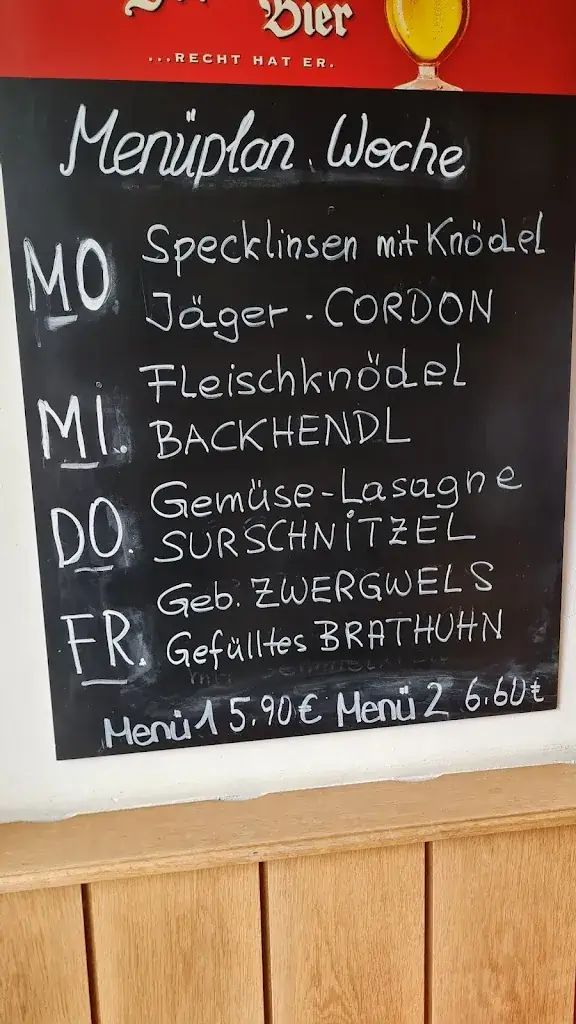 Bier
...RECHT HAT ER.
Menüplan. Woche
MO. Specklinsen mit Knödel
Jäger. CORDON
MI. Fleischknödel
BACKHENDL
DO. Gemüse-Lasagne
SURSCHNITZEL
FR. Geb. ZWERGWELS
Gefülltes BRATHUHN
Menü 1 5.90€ Menü 2 6.60€